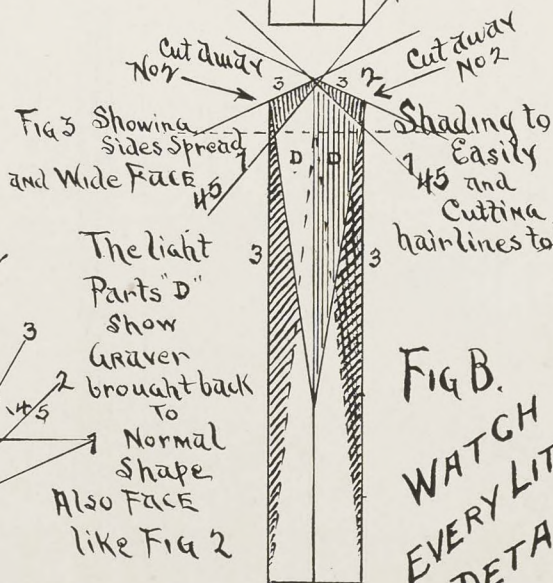 Cut away
No 2
3
3
2
Cut away
No 2
Fig 3 Showing
Sides Spread
and Wide Face
1
45
D
D
Shading to
Easily
1
45
and
Cutting
hairlines to
3
3
The light
Parts "D"
Show
Graver
brought back
To
Normal
Shape
Also Face
like Fig 2
3
2
45
1
Fig B.
WATCH
EVERY LIT
DETA